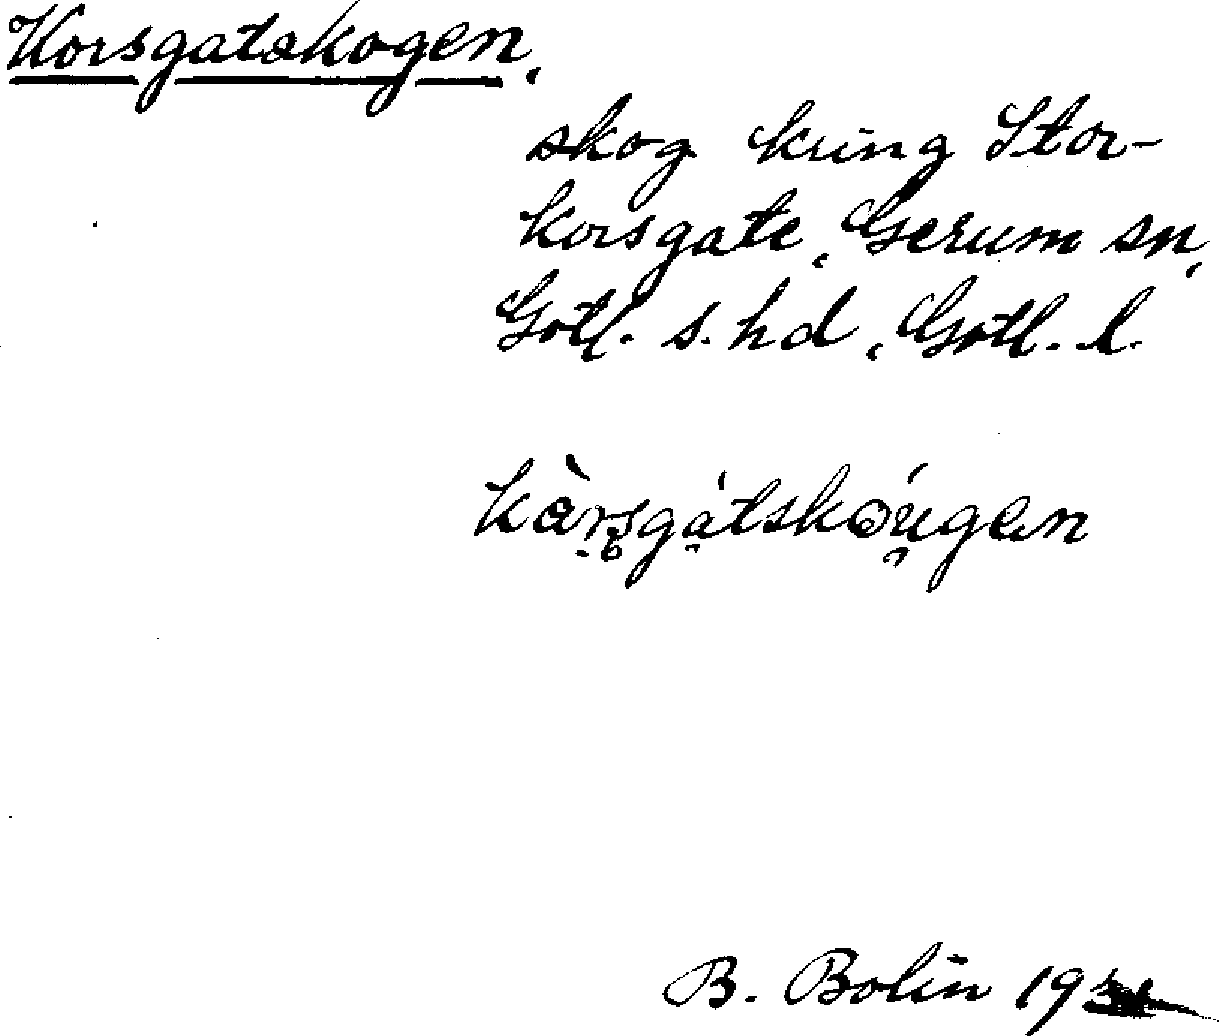 Korsgatskogen,
skog kring Stor-
korsgate, Gerum sn,
Gotl. s. hd, Gotl. l.
kàrsgátskəúgen
B. Bolin